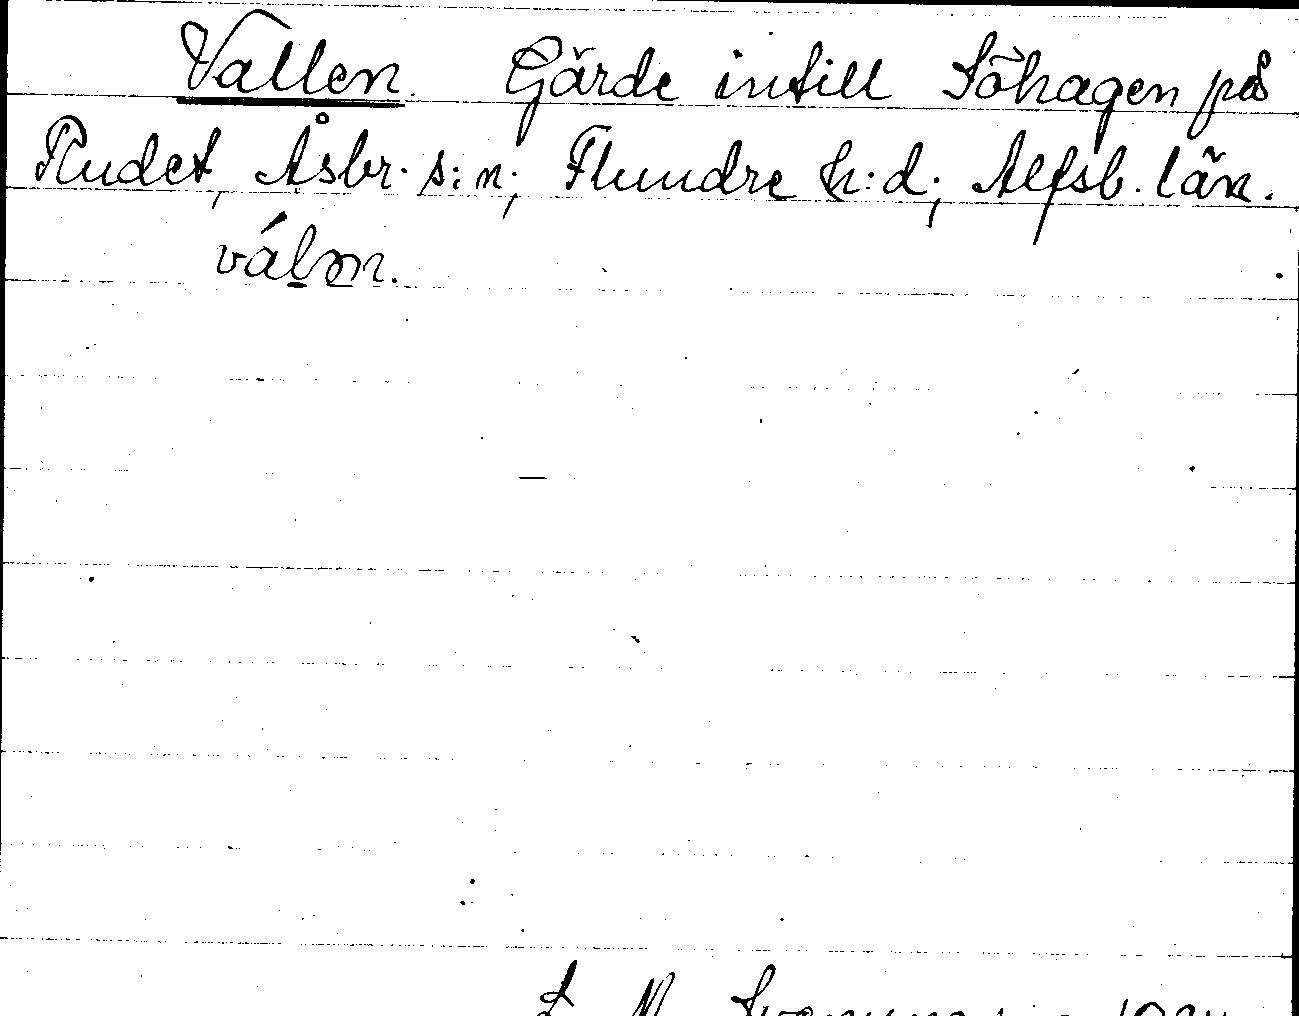 Vallen. Gärde intill Söhagen på
Rudet, Åsbr. s:n; Flundre h:d; Alfsb. län.
válən.